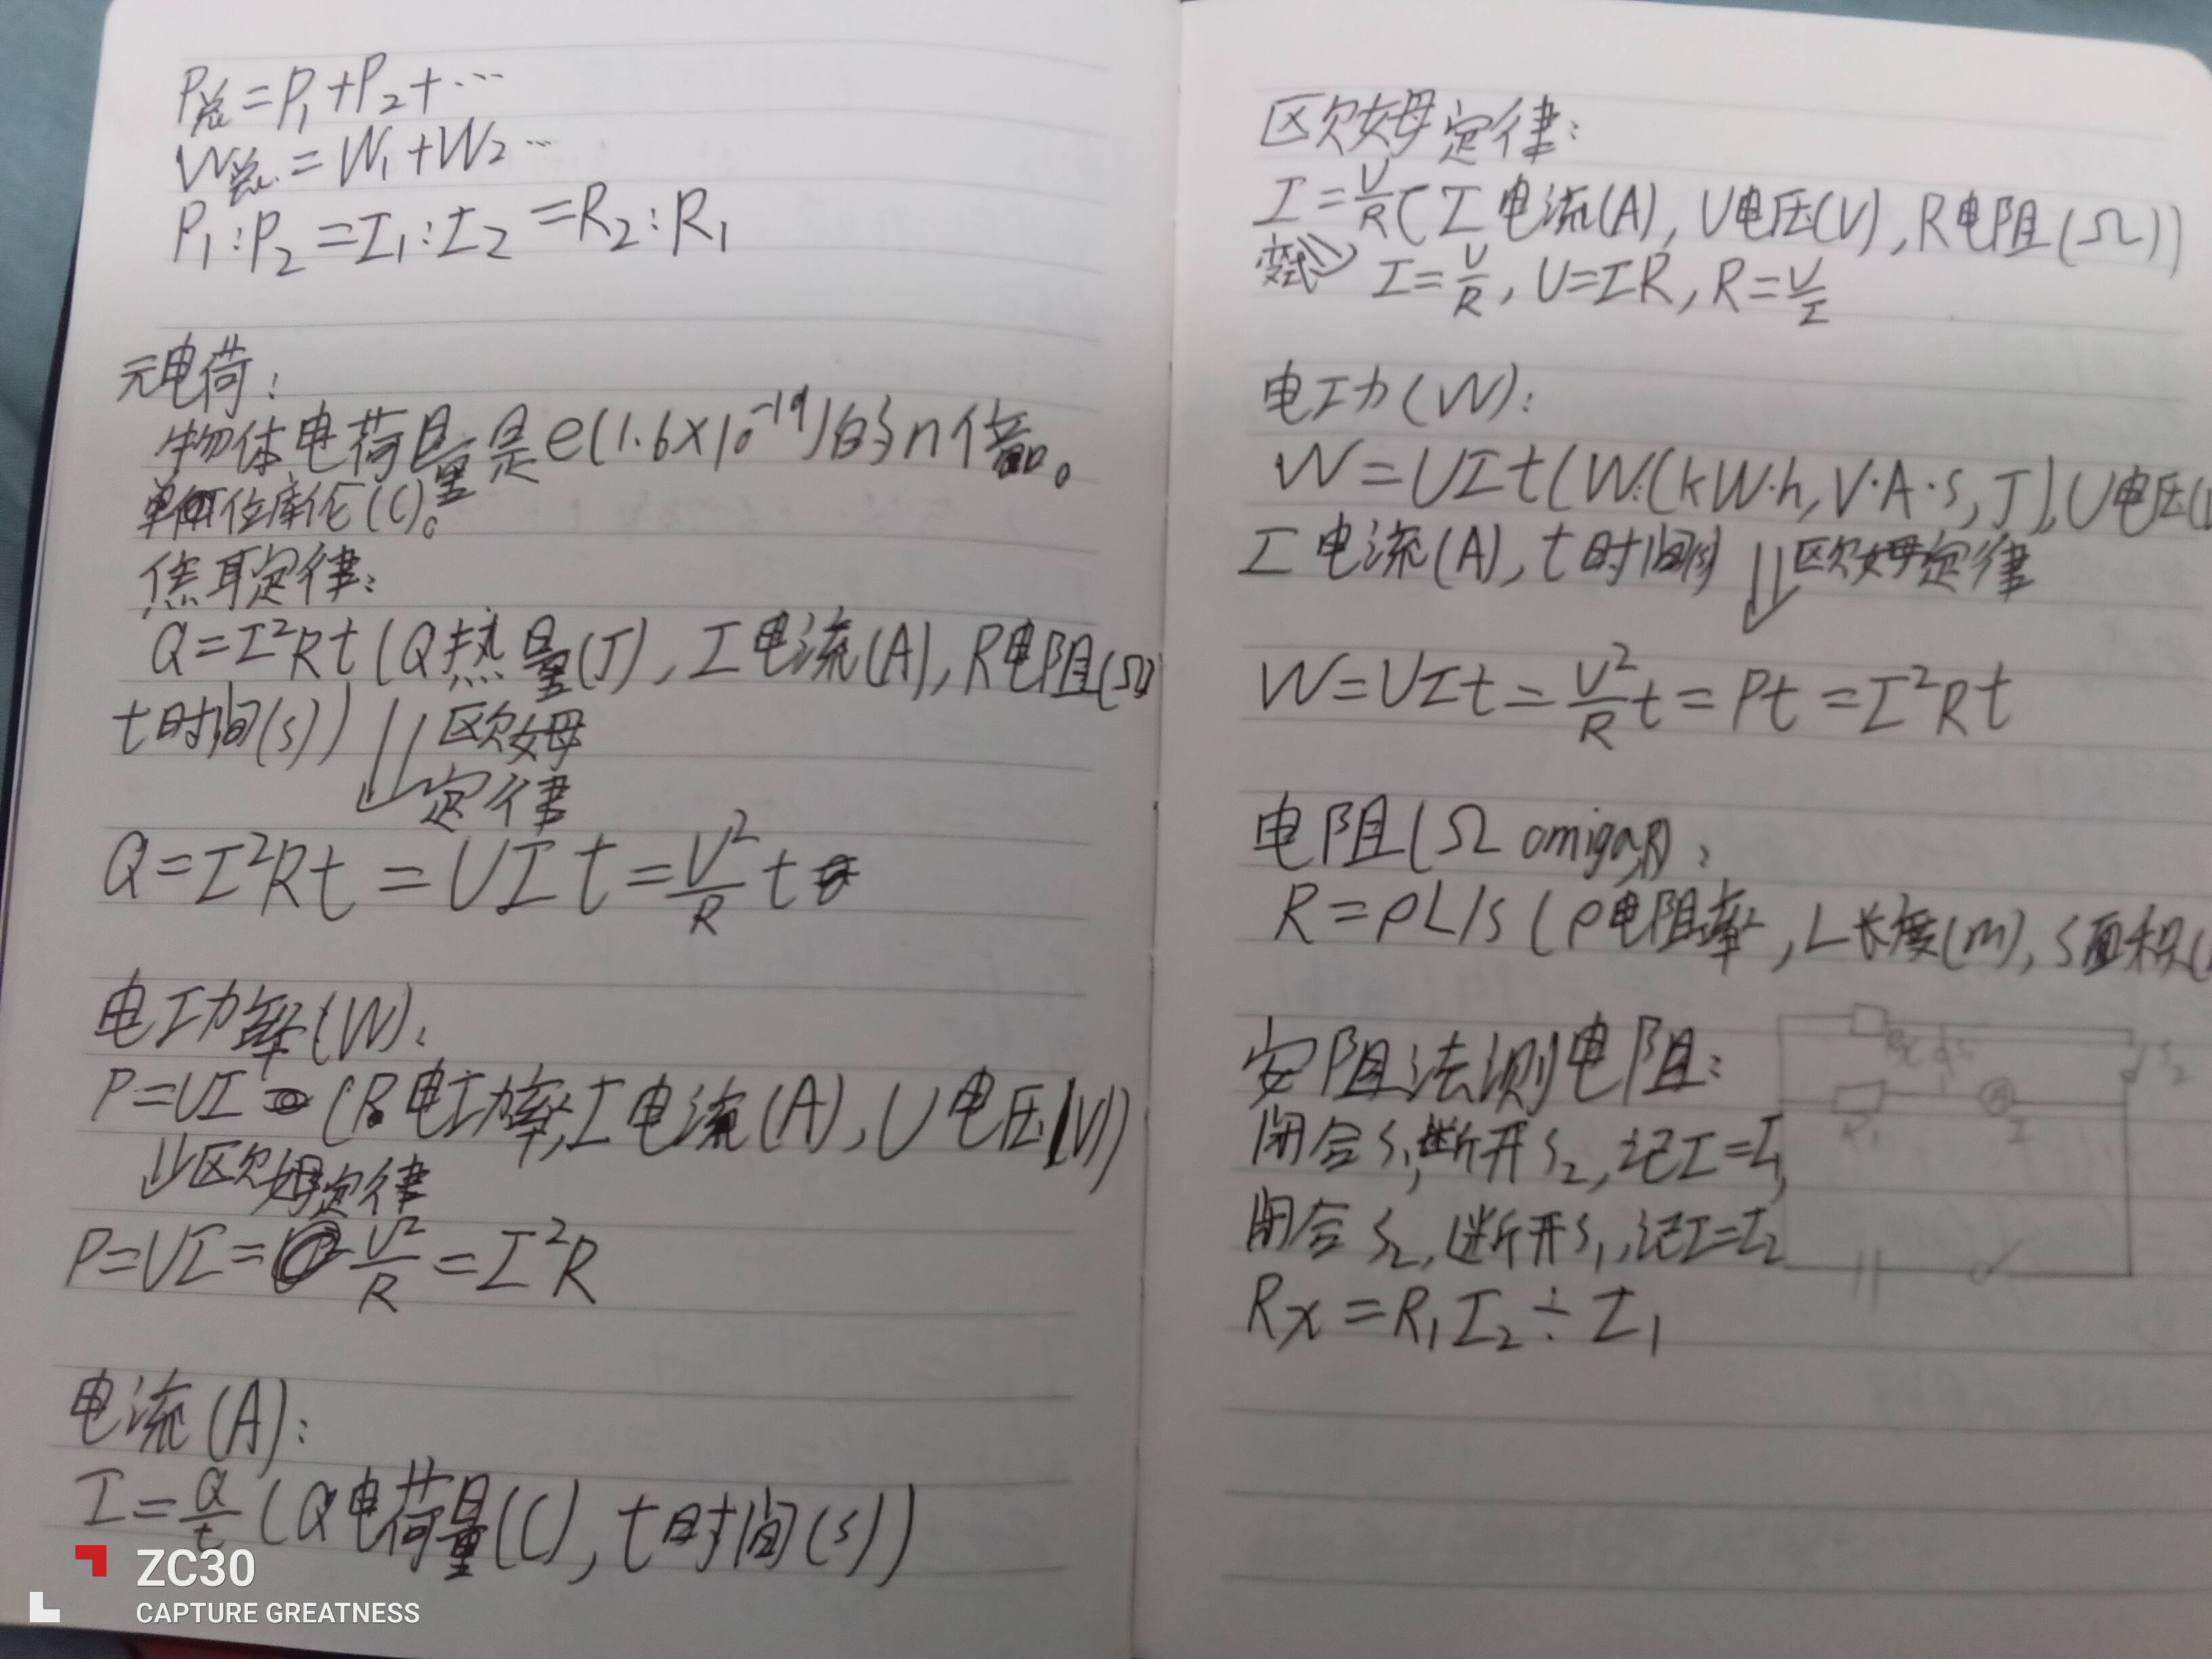 P总=P₁+P₂+…
W总=W₁+W₂…
P₁:P₂=I₁:I₂=R₂:R₁
元电荷:
物体电荷量是e(1.6×10⁻¹⁹)的n倍。
单位库伦(C)。
焦耳定律:
Q=I²Rt(Q热量(J),I电流(A),R电阻(Ω)
t时间(s))⇓欧姆
定律
Q=I²Rt=UIt=U²/R t
电功率(W):
P=UI(P电功率,I电流(A),U电压(V))
⇓欧姆定律
P=UI=U²/R=I²R
电流(A):
I=Q/t(Q电荷量(C),t时间(s))
ZC30
CAPTURE GREATNESS
欧姆定律:
I=U/R(I电流(A),U电压(V),R电阻(Ω))
变式⇒I=U/R,U=IR,R=U/I
电功(W):
W=UIt(W:(kW·h,V·A·s,J),U电压(
I电流(A),t时间(s)⇓欧姆定律
W=UIt=U²/R t=Pt=I²Rt
电阻(Ω omiga,R):
R=ρL/s(ρ电阻率,L长度(m),S面积(
安阻法测电阻:
闭合S₁,断开S₂,记I=I₁
闭合S₂,断开S₁,记I=I₂
Rx=R₁I₂÷I₁
Rx
S₂
R₁
A
I